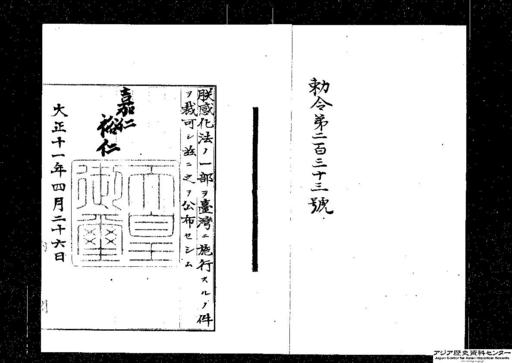 勅令第二百三十三號
朕感化法ノ一部ヲ臺灣ニ施行スルノ件
ヲ裁可シ茲ニ之ヲ公布セシム
嘉仁
裕仁
天皇
御璽
大正十一年四月二十六日
アジア歴史資料センター
Japan Center for Asian Historical Records